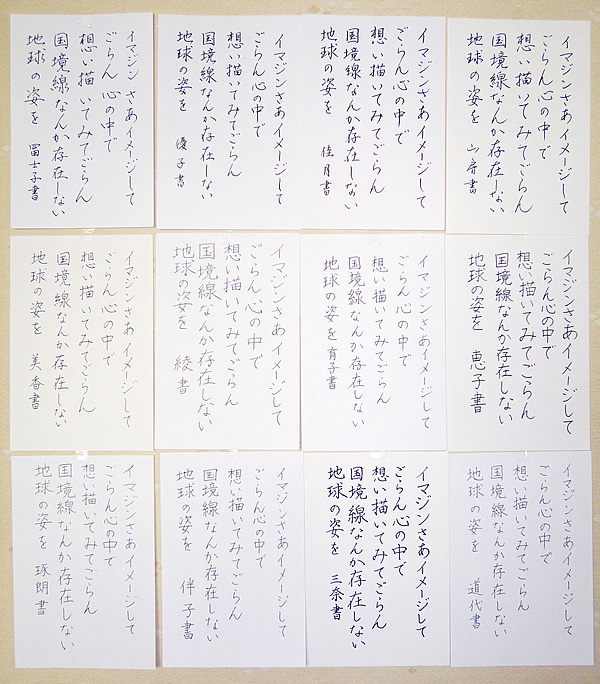 イマジンさあイメージして
ごらん心の中で
想い描いてみてごらん
国境線なんか存在しない
地球の姿を 山房書
イマジンさあイメージして
ごらん心の中で
想い描いてみてごらん
国境線なんか存在しない
地球の姿を 佳月書
イマジンさあイメージして
ごらん心の中で
想い描いてみてごらん
国境線なんか存在しない
地球の姿を 優子書
イマジンさあイメージして
ごらん心の中で
想い描いてみてごらん
国境線なんか存在しない
地球の姿を 冨士子書
イマジンさあイメージして
ごらん心の中で
想い描いてみてごらん
国境線なんか存在しない
地球の姿を 恵子書
イマジンさあイメージして
ごらん心の中で
想い描いてみてごらん
国境線なんか存在しない
地球の姿を 育子書
イマジンさあイメージして
ごらん心の中で
想い描いてみてごらん
国境線なんか存在しない
地球の姿を 綾書
イマジンさあイメージして
ごらん心の中で
想い描いてみてごらん
国境線なんか存在しない
地球の姿を 美香書
イマジンさあイメージして
ごらん心の中で
想い描いてみてごらん
国境線なんか存在しない
地球の姿を 道代書
イマジンさあイメージして
ごらん心の中で
想い描いてみてごらん
国境線なんか存在しない
地球の姿を 三奈書
イマジンさあイメージして
ごらん心の中で
想い描いてみてごらん
国境線なんか存在しない
地球の姿を 伴子書
イマジンさあイメージして
ごらん心の中で
想い描いてみてごらん
国境線なんか存在しない
地球の姿を 琢朗書